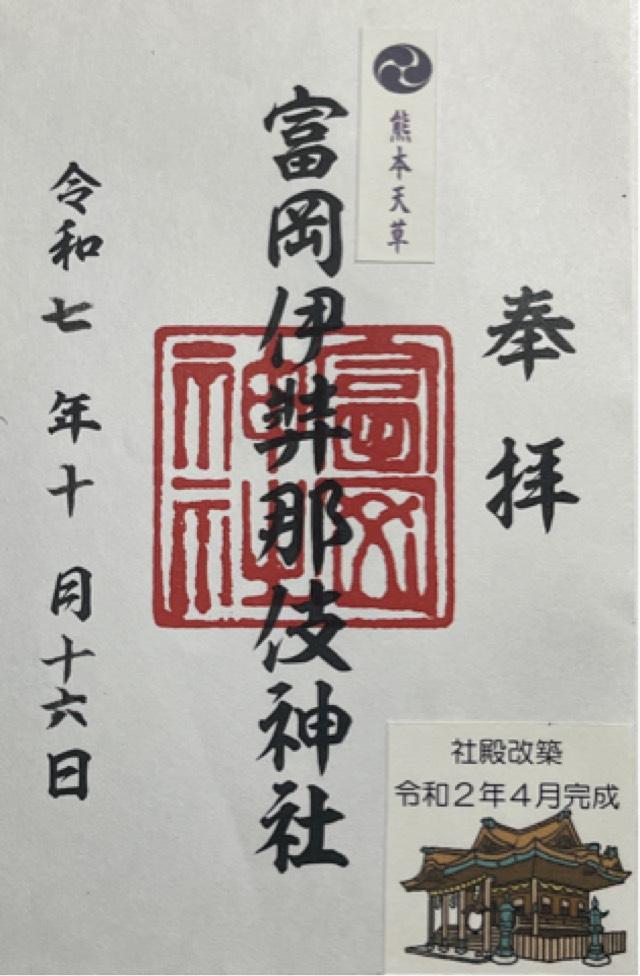 熊本天草
奉拝
富岡伊弉那伎神社
富岡神社
令和七年十月十六日
社殿改築
令和2年4月完成